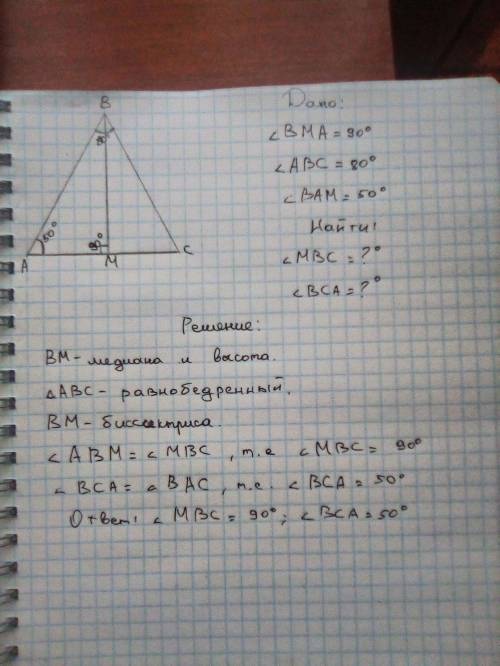 B
50°
90°
A
M
C
Дано:
∠BMA = 90°
∠ABC = 80°
∠BAM = 50°
Найти:
∠MBC = ?°
∠BCA = ?°
Решение:
BM - медиана и высота.
△ABC - равнобедренный.
BM - биссектриса.
∠ABM = ∠MBC, т.е ∠MBC = 90°
∠BCA = ∠BAC, т.е. ∠BCA = 50°
Ответ: ∠MBC = 90°; ∠BCA = 50°